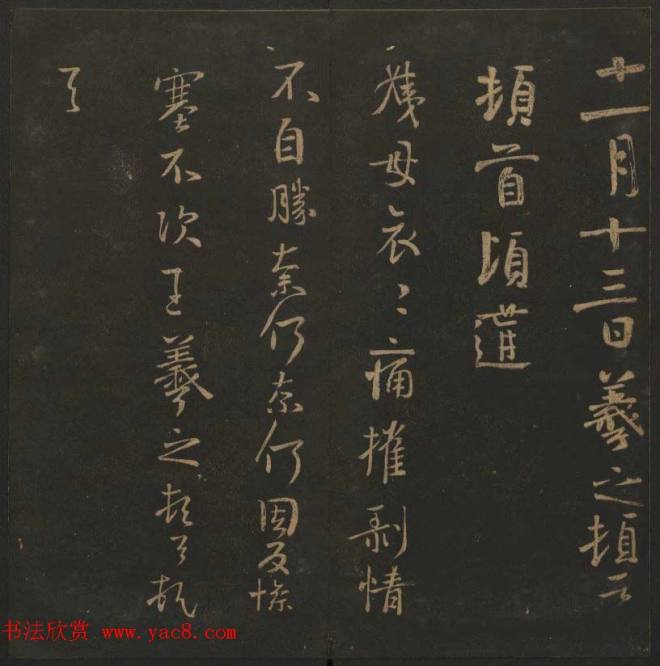 十一月十三日羲之頓首
頓首頃遘
姨母哀〻痛摧剥情
不自勝奈何奈何因反惨
塞不次王羲之頓首頓
首
书法欣赏 www.yac8.com